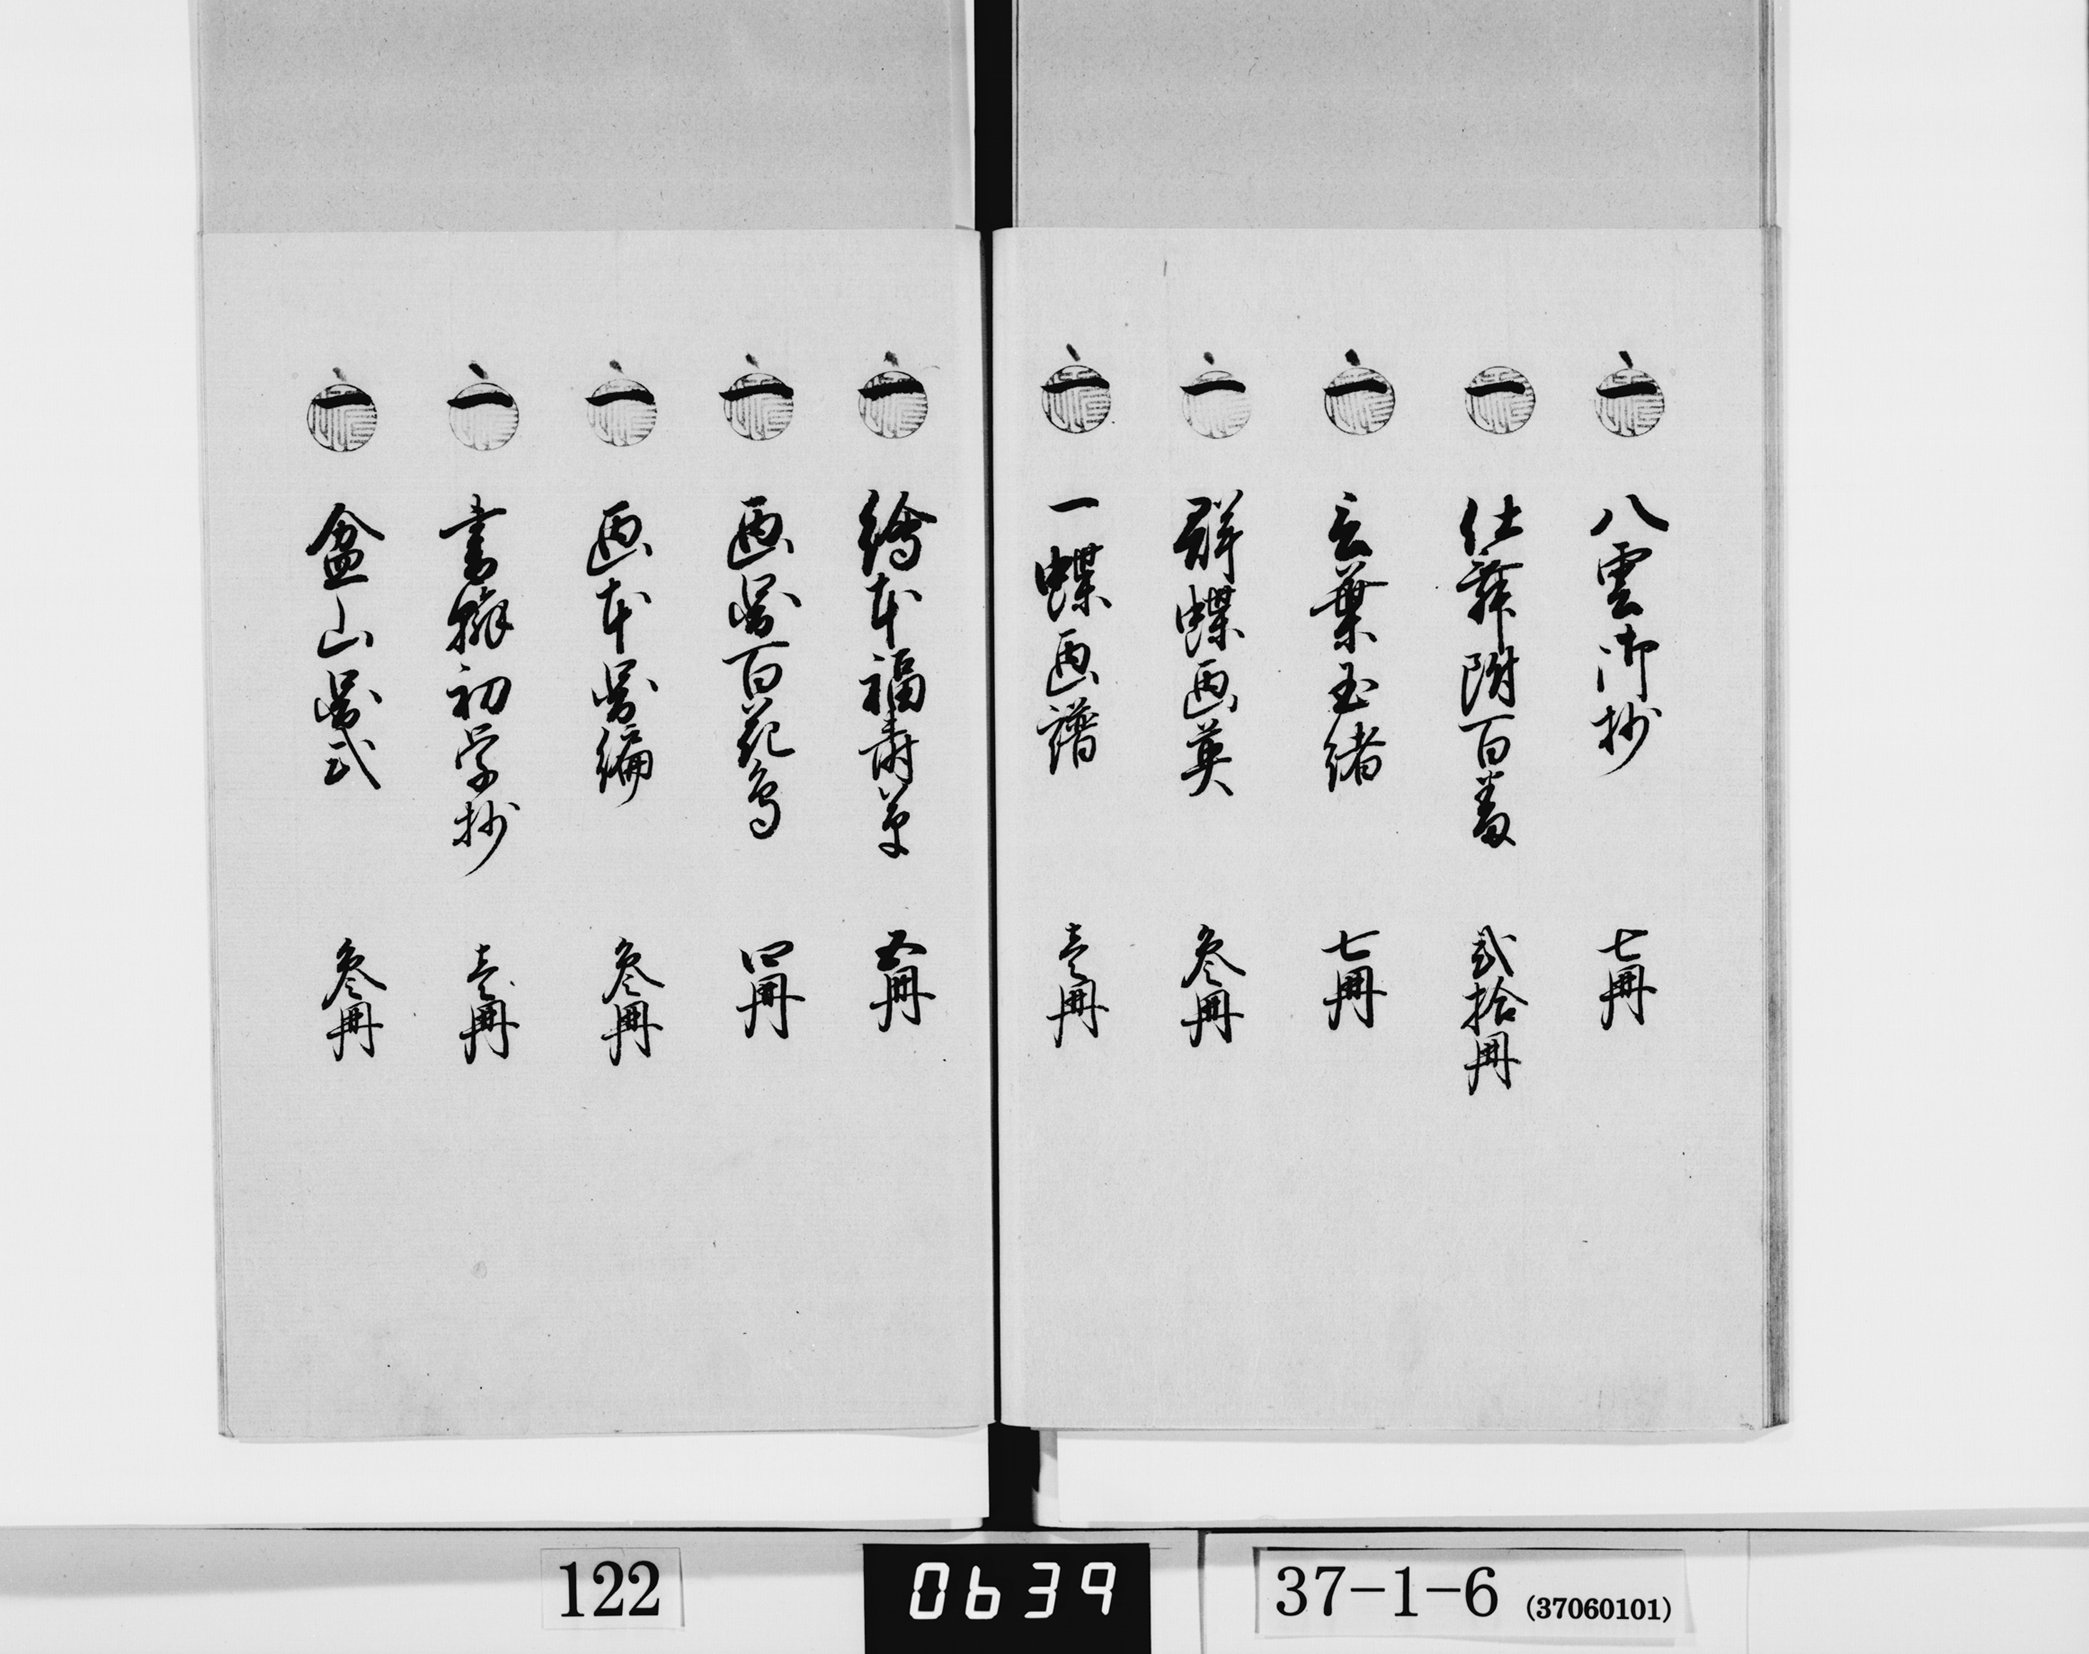 一 八雲御抄 七冊
一 仕舞附百番 弐拾冊
一 言葉玉緒 七冊
一 群蝶画英 参冊
一 一蝶画譜 壱冊
一 繪本福寿草 五冊
一 画図百花鳥 四冊
一 画本図編 参冊
一 書札初学抄 壱冊
一 盆山図式 参冊
122
0639
37-1-6 (37060101)